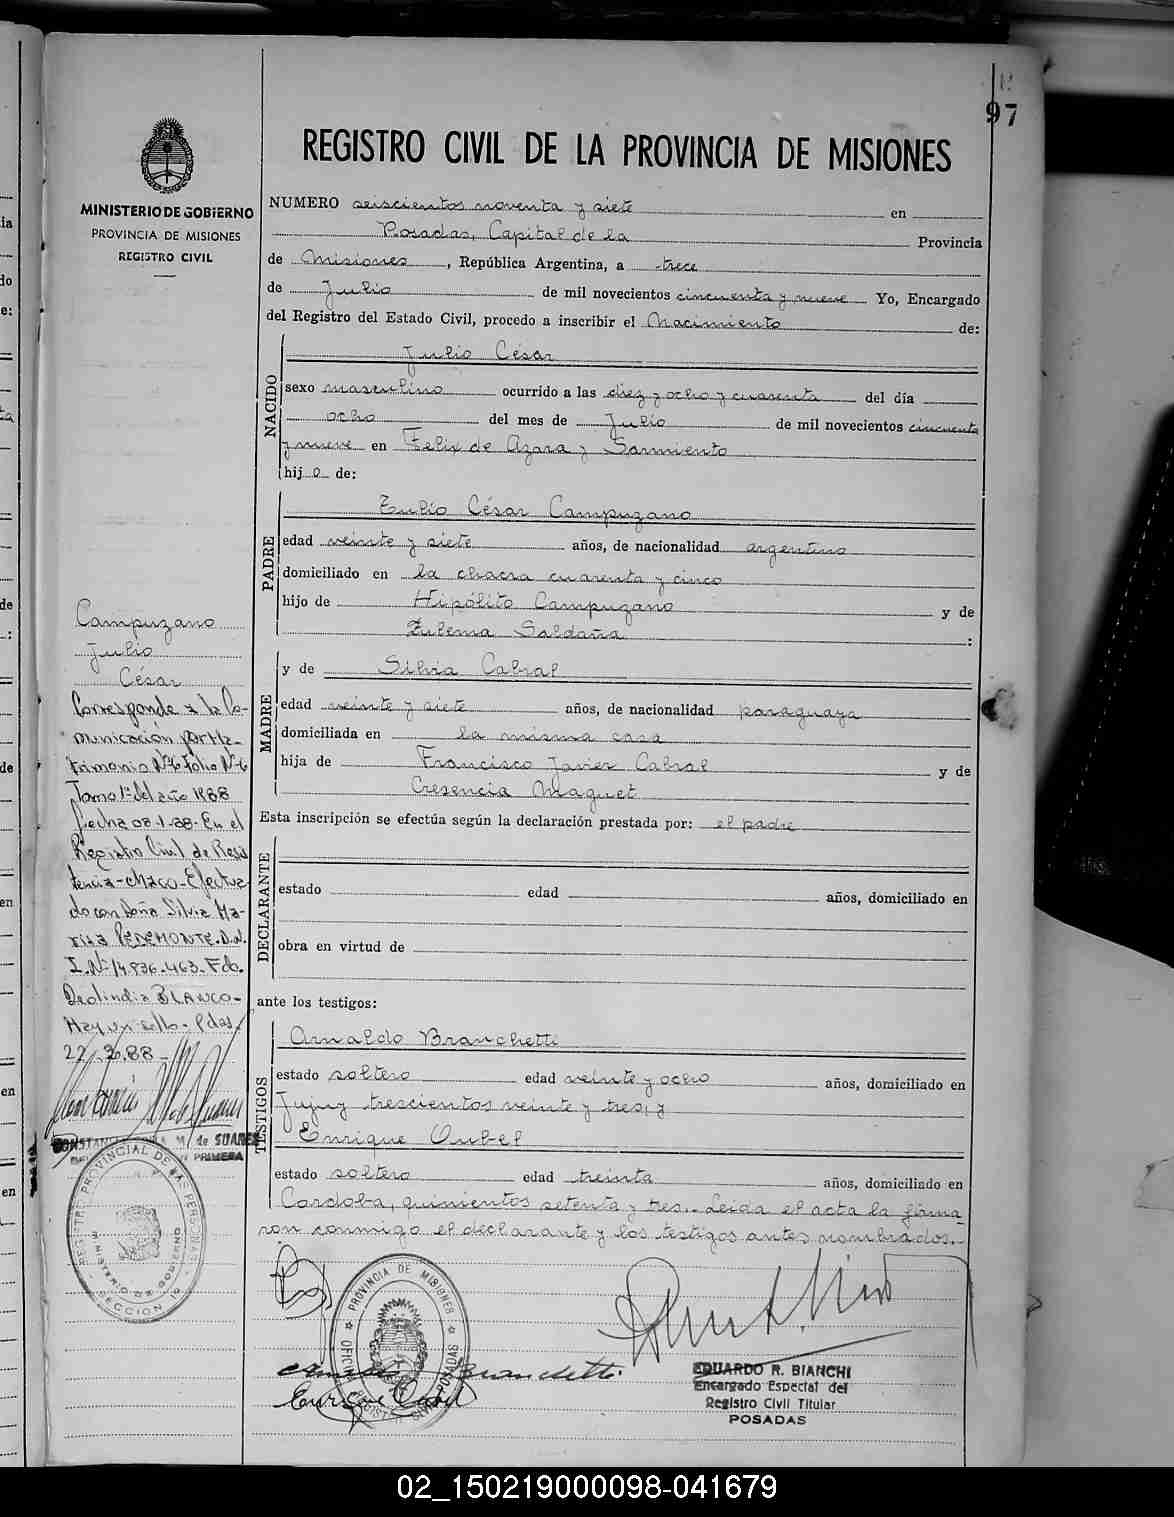 97
REGISTRO CIVIL DE LA PROVINCIA DE MISIONES
MINISTERIO DE GOBIERNO
PROVINCIA DE MISIONES
REGISTRO CIVIL
NUMERO seiscientos noventa y siete en
Posadas, Capital de la Provincia
de Misiones, República Argentina, a trece
de Julio de mil novecientos cincuenta y nueve Yo, Encargado
del Registro del Estado Civil, procedo a inscribir el Nacimiento de:
NACIDO
Julio César
sexo masculino ocurrido a las diez y ocho y cuarenta del día
ocho del mes de Julio de mil novecientos cincuenta
y nueve en Felix de Azara y Sarmiento
hijo de:
PADRE
Tulio César Campuzano
edad veinte y siete años, de nacionalidad argentino
domiciliado en la chacra cuarenta y cinco
hijo de Hipólito Campuzano y de
Zulema Saldaña :
MADRE
y de Silvia Cabral
edad veinte y siete años, de nacionalidad paraguaya
domiciliada en la misma casa
hija de Francisco Javier Cabral y de
Cresencia Maguet
Esta inscripción se efectúa según la declaración prestada por: el padre
DECLARANTE
estado edad años, domiciliado en
obra en virtud de
ante los testigos:
TESTIGOS
Arnaldo Branchetti
estado soltero edad veinte y ocho años, domiciliado en
Jujuy trescientos veinte y tres, y
Enrique Oubel
estado soltero edad treinta años, domiciliado en
Cordoba, quinientos setenta y tres.- Leida el acta la firma-
ron conmigo el declarante y los testigos antes nombrados.-
Campuzano
Julio
César
Corresponde a la Co-
municación por Ma-
trimonio Nº6 Folio Nº6
Tomo 1º del año 1988
fecha 08-1-88- En el
Registro Civil de Resis
tencia-Chaco-Efectua
do con Doña Silvia Ma-
risa PEDEMONTE. D.N.
I. Nº 14.936.463. Fdo.
Deolindia BLANCO-
Hay un sello- Pdas.
22-3-88-
M. de SUAREZ
PRIMERA
REGISTRO PROVINCIAL DE LAS PERSONAS
MINISTERIO DE GOBIERNO
SECCION
PROVINCIA DE MISIONES
OFICINA REGISTRO CIVIL POSADAS
EDUARDO R. BIANCHI
Encargado Especial del
Registro Civil Titular
POSADAS
02_150219000098-041679